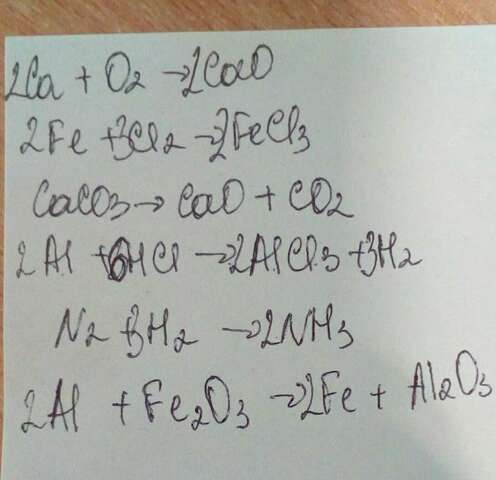 2Ca + O2 → 2CaO
2Fe + 3Cl2 → 2FeCl3
CaCO3 → CaO + CO2
2Al + 6HCl → 2AlCl3 + 3H2
N2 + 3H2 → 2NH3
2Al + Fe2O3 → 2Fe + Al2O3